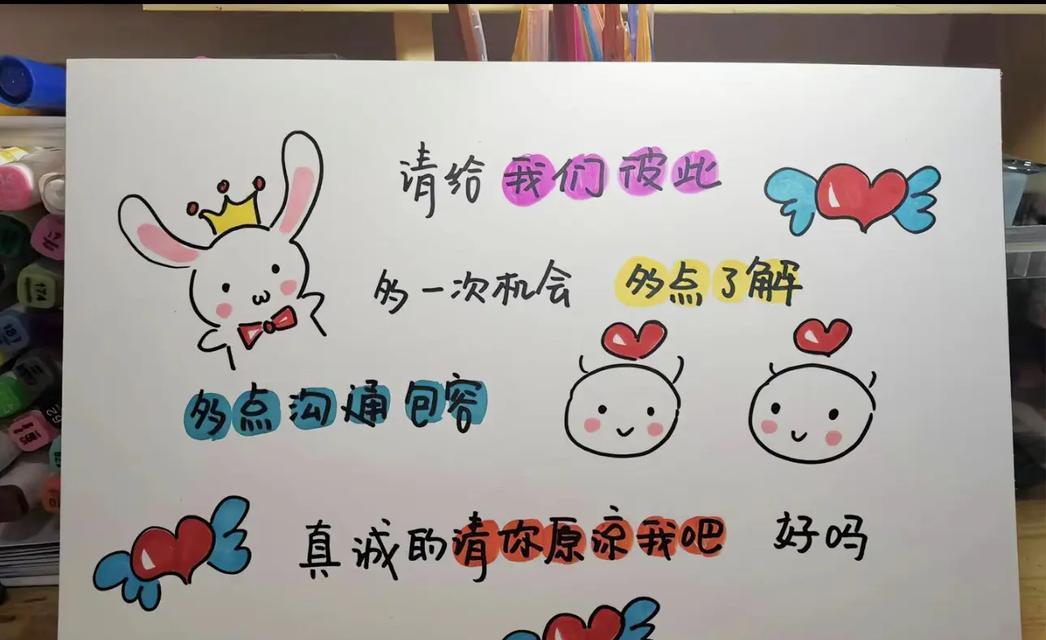 请给我们彼此
多一次机会 多点了解
多点沟通包容
真诚的请你原谅我吧 好吗